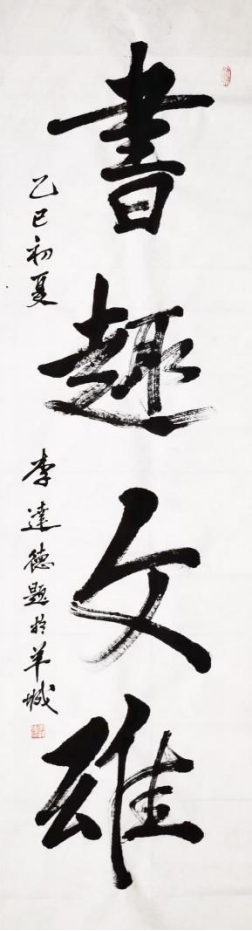 書趣文雄
乙巳初夏
李達德題於羊城